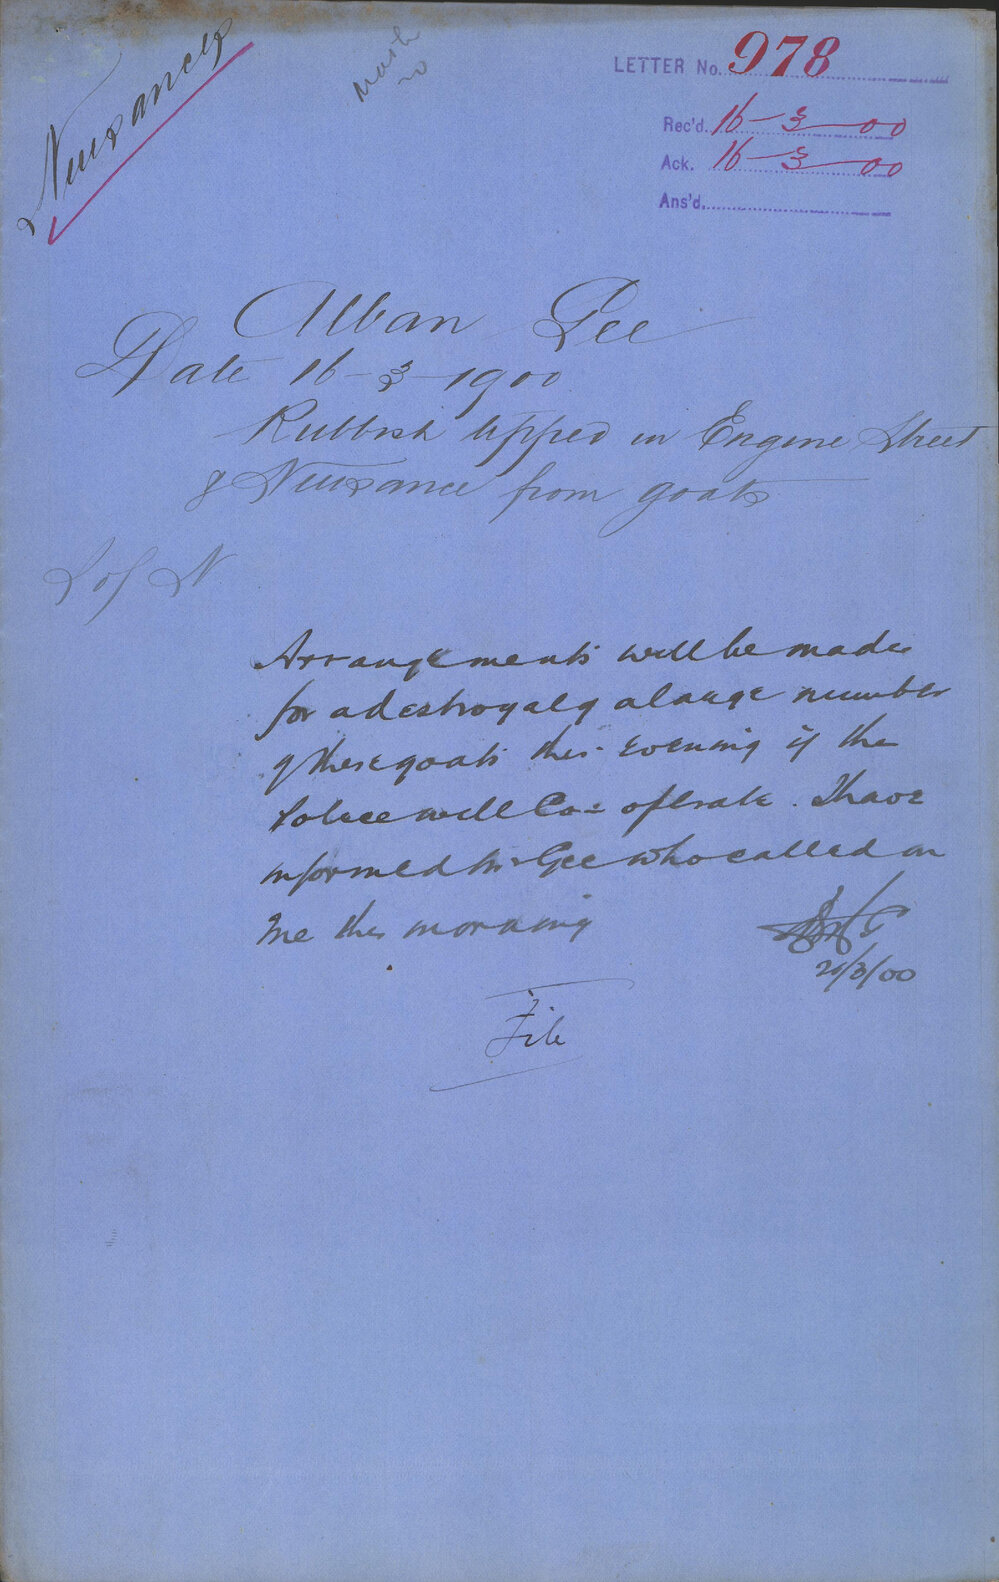 Nuisances
LETTER No. 978
Rec'd. 16-3-00
Ack. 16-3-00
Ans'd.
Alban Gee
Date 16-3-1900
Rubbish tipped in Engine Street
& Nuisance from goats
I of N
Arrangements will be made
for a destroyal of a large number
of these goats this evening if the
Police will Co-operate. I have
informed Mr Gee who called on
me this morning
20/3/00
File